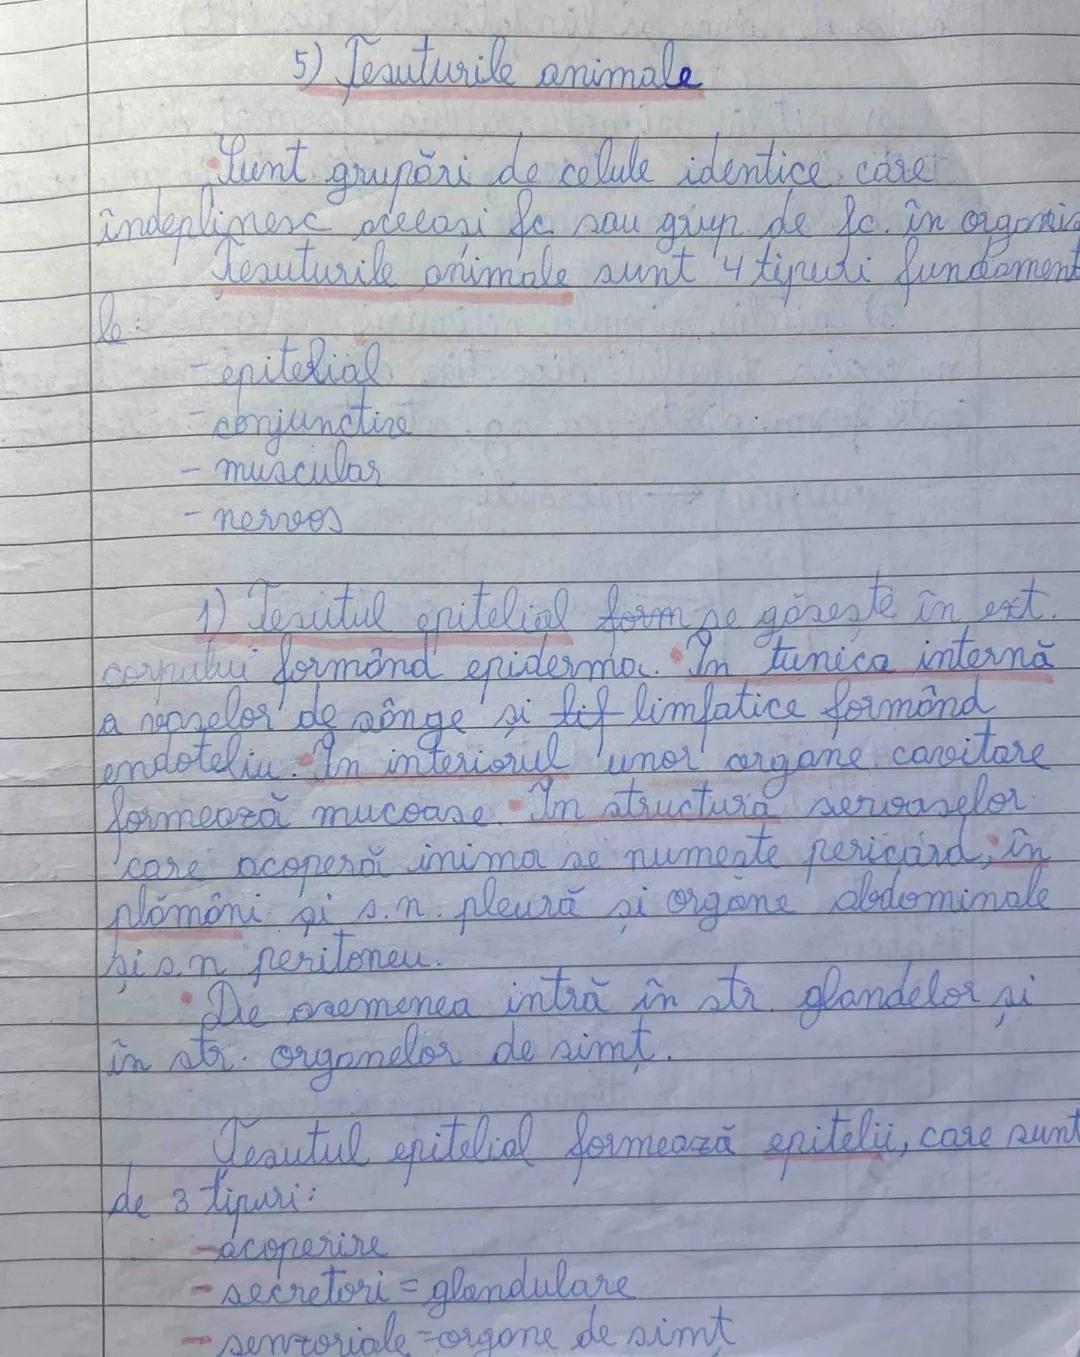 5) Țesuturile animale
Sunt grupări de celule identice care
îndeplinesc aceeași fc. sau grup de fc. în organis
Țesuturile animale sunt 4 tipuri fundament
le:
- epitelial
- conjunctive
- muscular
- nervos
1) Țesutul epitelial form se găsește în ext.
corpului formând epiderma. În tunica internă
a vaselor de sânge și limfatice formând
endoteliu. În interiorul unor organe cavitare
formează mucoase. În structura seroaselor
care acoperă inima se numește pericard, în
plămâni și s.n. pleură și organe abdominale
și s.n peritoneu.
De asemenea intră în str. glandelor și
în str. organelor de simț.
Țesutul epitelial formează epitelii, care sunt
de 3 tipuri:
- acoperire
- secretori = glandulare
- senzoriale = organe de simț